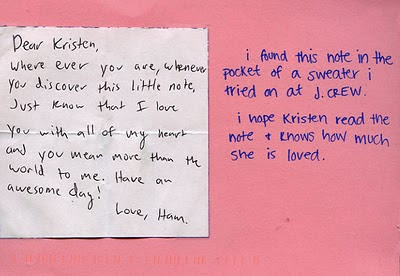 Dear Kristen,
where ever you are, whenever
you discover this little note,
Just know that I love
you with all of my heart
and you mean more than the
world to me. Have an
awesome day!
Love, Ham.
i found this note in the
pocket of a sweater i
tried on at J.CREW.
i hope Kristen read the
note + knows how much
she is loved.